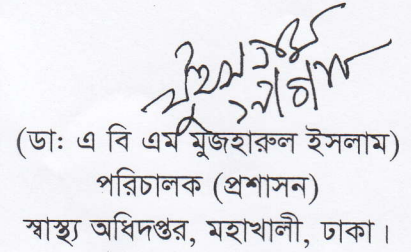 (ডাঃ এ বি এম মুজহারুল ইসলাম)
পরিচালক (প্রশাসন)
স্বাস্থ্য অধিদপ্তর, মহাখালী, ঢাকা।